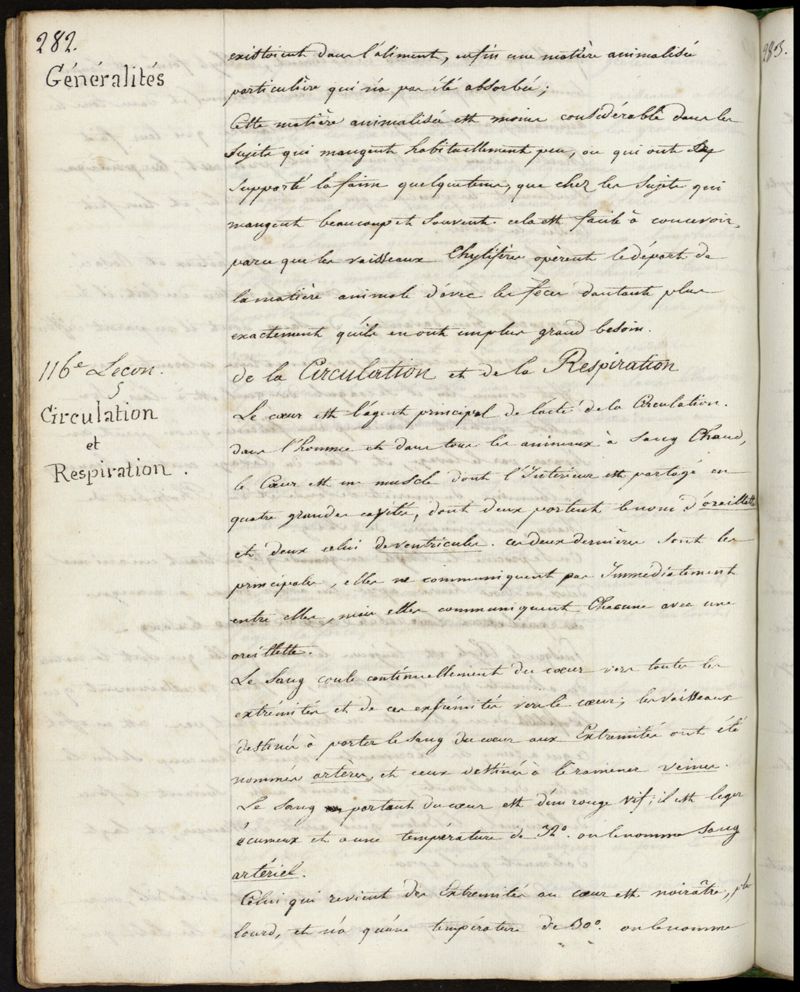 282.
Généralités
existoient dans l'aliment, enfin une matière animalisée
particulière qui n'a pas été absorbée;
Cette matière animalisée est moins considérable dans les
Sujets qui mangent habituellement peu, ou qui ont
supporté la faim quelquetems, que chez les Sujets qui
mangent beaucoup et Souvent. cela est facile à concevoir,
parce que les vaisseaux Chylifères opèrent le départ de
la matière animale d'avec les fèces dautant plus
exactement quils en ont un plus grand besoin.
116e Lecon.
Circulation
et
Respiration.
de la Circulation et de la Respiration
Le cœur est l'agent principal de l'acte de la Circulation.
dans l'homme et dans tous les animaux à Sang Chaud,
le Cœur est un muscle dont l'Intérieur est partagé en
quatre grandes cavités, dont deux portent le nom d'oreillette
et deux celui de ventricules. ces deux dernières sont les
principales, elles ne communiquent pas Immédiatement
entre elles, mais elles communiquent Chacune avec une
oreillette.
Le Sang coule continuellement du cœur vers toutes les
extrémités et de ces extrémités vers le cœur; les Vaisseaux
destinés à porter le Sang du cœur aux Extremités ont été
nommés artères, et ceux destinés à le ramener veines.
Le Sang partant du cœur est d'un rouge vif; il est leger
écumeux et a une température de 32°. on le nomme Sang
artériel.
Celui qui revient des Extremités au cœur est noirâtre, plus
lourd, et n'a qu'une température de 30°. on le nomme
285.